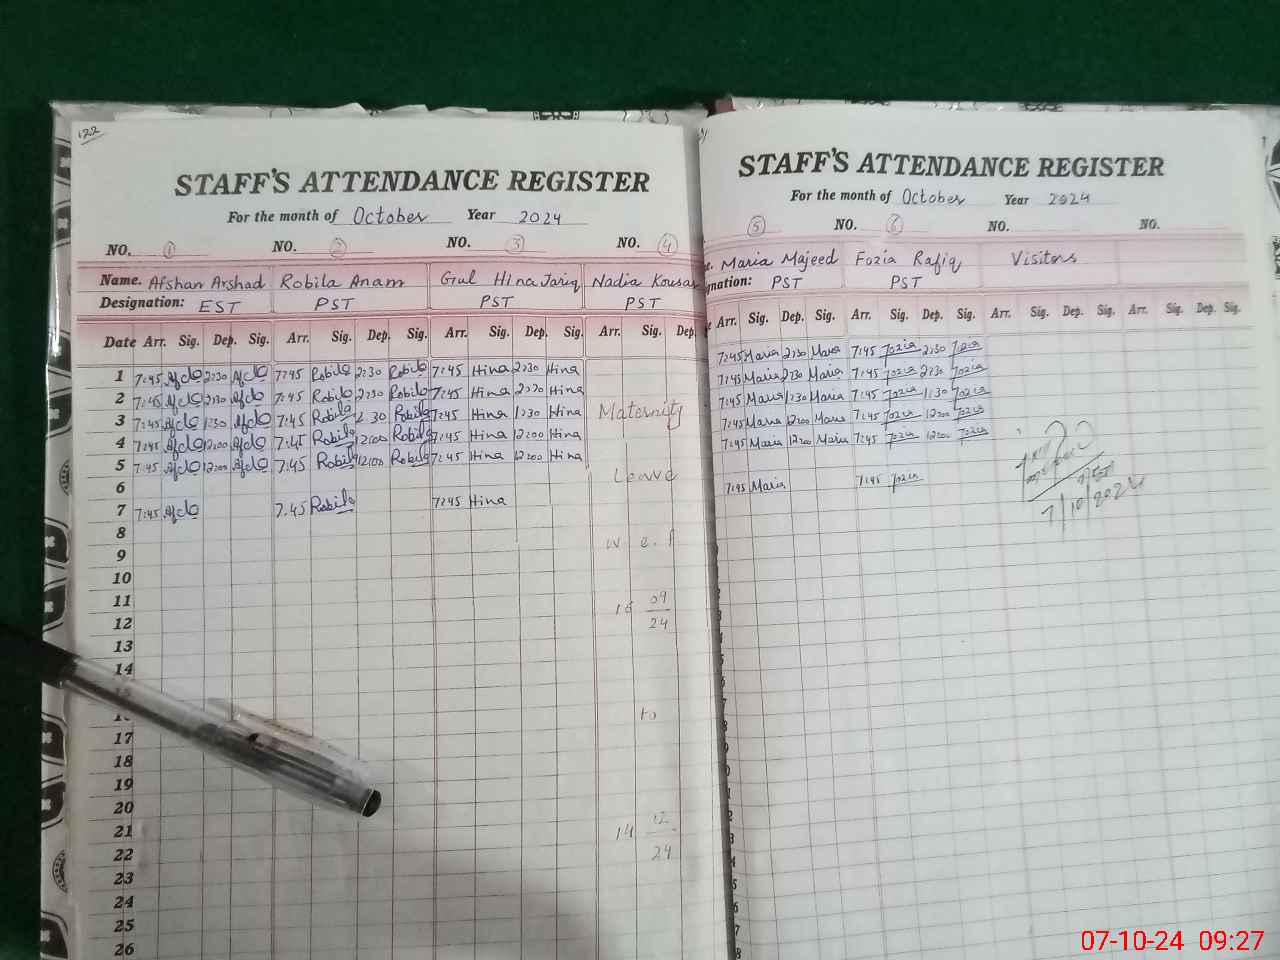 122
STAFF'S ATTENDANCE REGISTER
For the month of October Year 2024
NO. 1 NO. 2 NO. 3 NO. 4
Name. Afshan Arshad Robila Anam Gul Hina Tariq Nadia Kousar
Designation: EST PST PST PST
Date Arr. Sig. Dep. Sig. Arr. Sig. Dep. Sig. Arr. Sig. Dep. Sig. Arr. Sig. Dep.
1 7:45 2:30 7:45 Robila 2:30 Robila 7:45 Hina 2:30 Hina
2 7:45 2:30 7:45 Robila 2:30 Robila 7:45 Hina 2:30 Hina
3 7:45 1:30 7:45 Robila 1:30 Robila 7:45 Hina 1:30 Hina Maternity
4 7:45 12:00 7:45 Robila 12:00 Robila 7:45 Hina 12:00 Hina
5 7:45 12:00 7:45 Robila 12:00 Robila 7:45 Hina 12:00 Hina
6 Leave
7 7:45 7:45 Robila 7:45 Hina
8
9 w e.f
10
11
12 09
24
13
14
15
16 to
17
18
19
20
21 14 12
22 24
23
24
25
26
STAFF'S ATTENDANCE REGISTER
For the month of October Year 2024
5 NO. 6 NO. NO.
Maria Majeed Fozia Rafiq Visitors
gnation: PST PST
Arr. Sig. Dep. Sig. Arr. Sig. Dep. Sig. Arr. Sig. Dep. Sig. Arr. Sig. Dep. Sig.
7:45 Maria 2:30 Maria 7:45 Fozia 2:30 Fozia
7:45 Maria 2:30 Maria 7:45 Fozia 2:30 Fozia
7:45 Maria 1:30 Maria 7:45 Fozia 1:30 Fozia
7:45 Maria 12:00 Maria 7:45 Fozia 12:00 Fozia
7:45 Maria 12:00 Maria 7:45 Fozia 12:00 Fozia
7:45 Maria 7:45 Fozia
7/10/2024
07-10-24 09:27